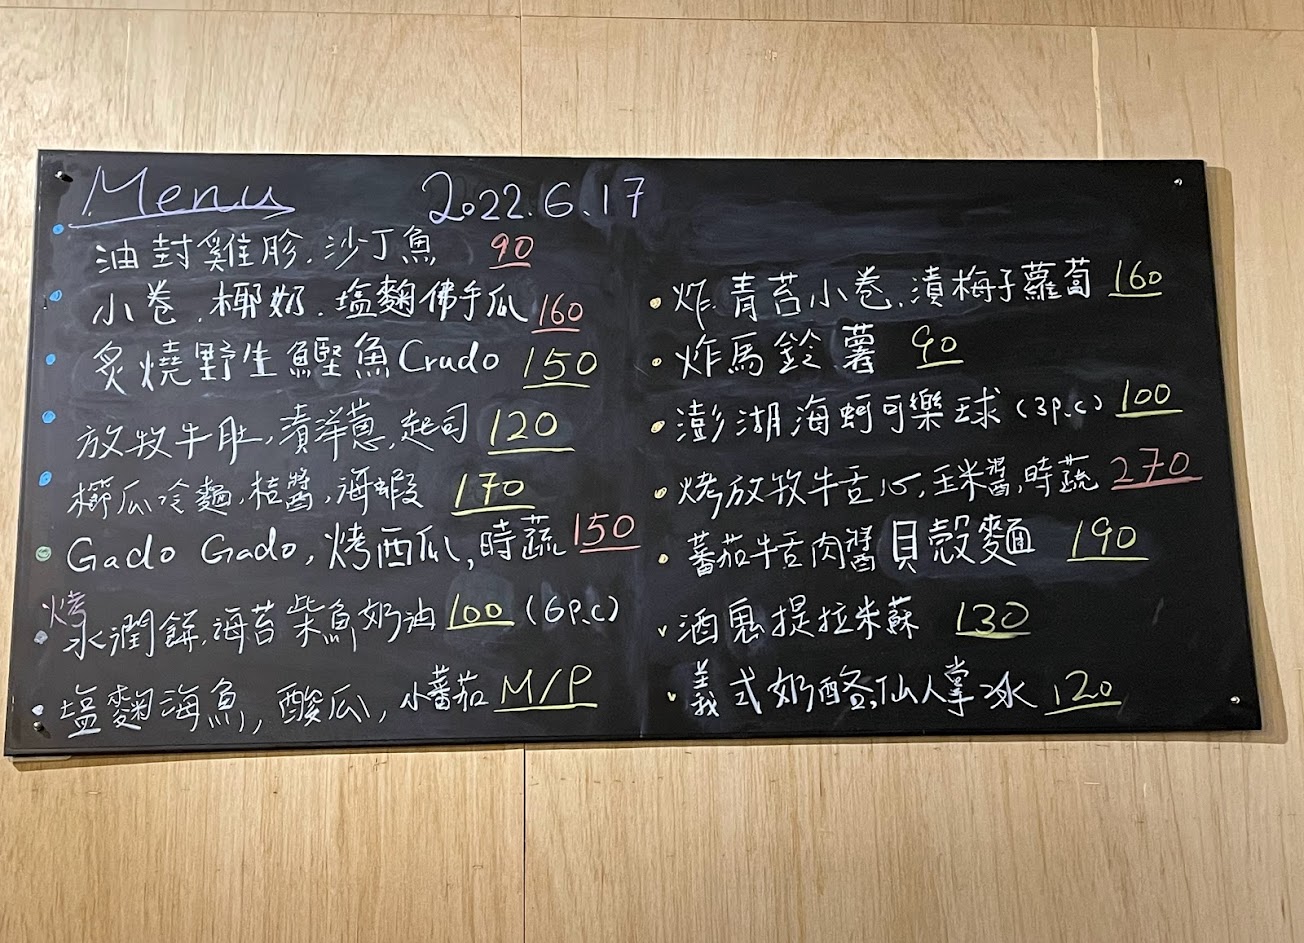 Menu 2022.6.17
油封雞胗.沙丁魚 90
小卷.椰奶.塩麴佛手瓜 160
炙燒野生鰹魚Crudo 150
放牧牛肚,漬洋蔥,起司 120
櫛瓜冷麵,桔醬,海蝦 170
Gado Gado,烤西瓜,時蔬 150
烤水潤餅.海苔柴魚奶油 100 (6p.c)
塩麴海魚,酸瓜,小蕃茄 M/P
炸青苔小卷.漬梅子蘿蔔 160
炸馬鈴薯 90
澎湖海蚵可樂球(3p.c) 100
烤放牧牛舌心,玉米醬,時蔬 270
蕃茄牛舌肉醬貝殼麵 190
酒鬼提拉米蘇 130
義式奶酪,仙人掌冰 120